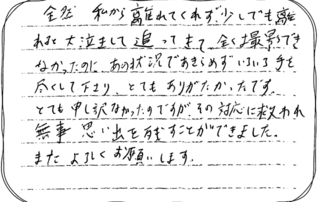 全然 私から離れてくれず少しでも離
れると大泣きして追ってきて、全く撮影でき
なかったのに あの状況であきらめず いろいろ手を
尽くして下さり、とてもありがたかったです。
とても申し訳なかったのですが、その対応に救われ
無事 思い出を残すことができました。
また よろしくお願いします。